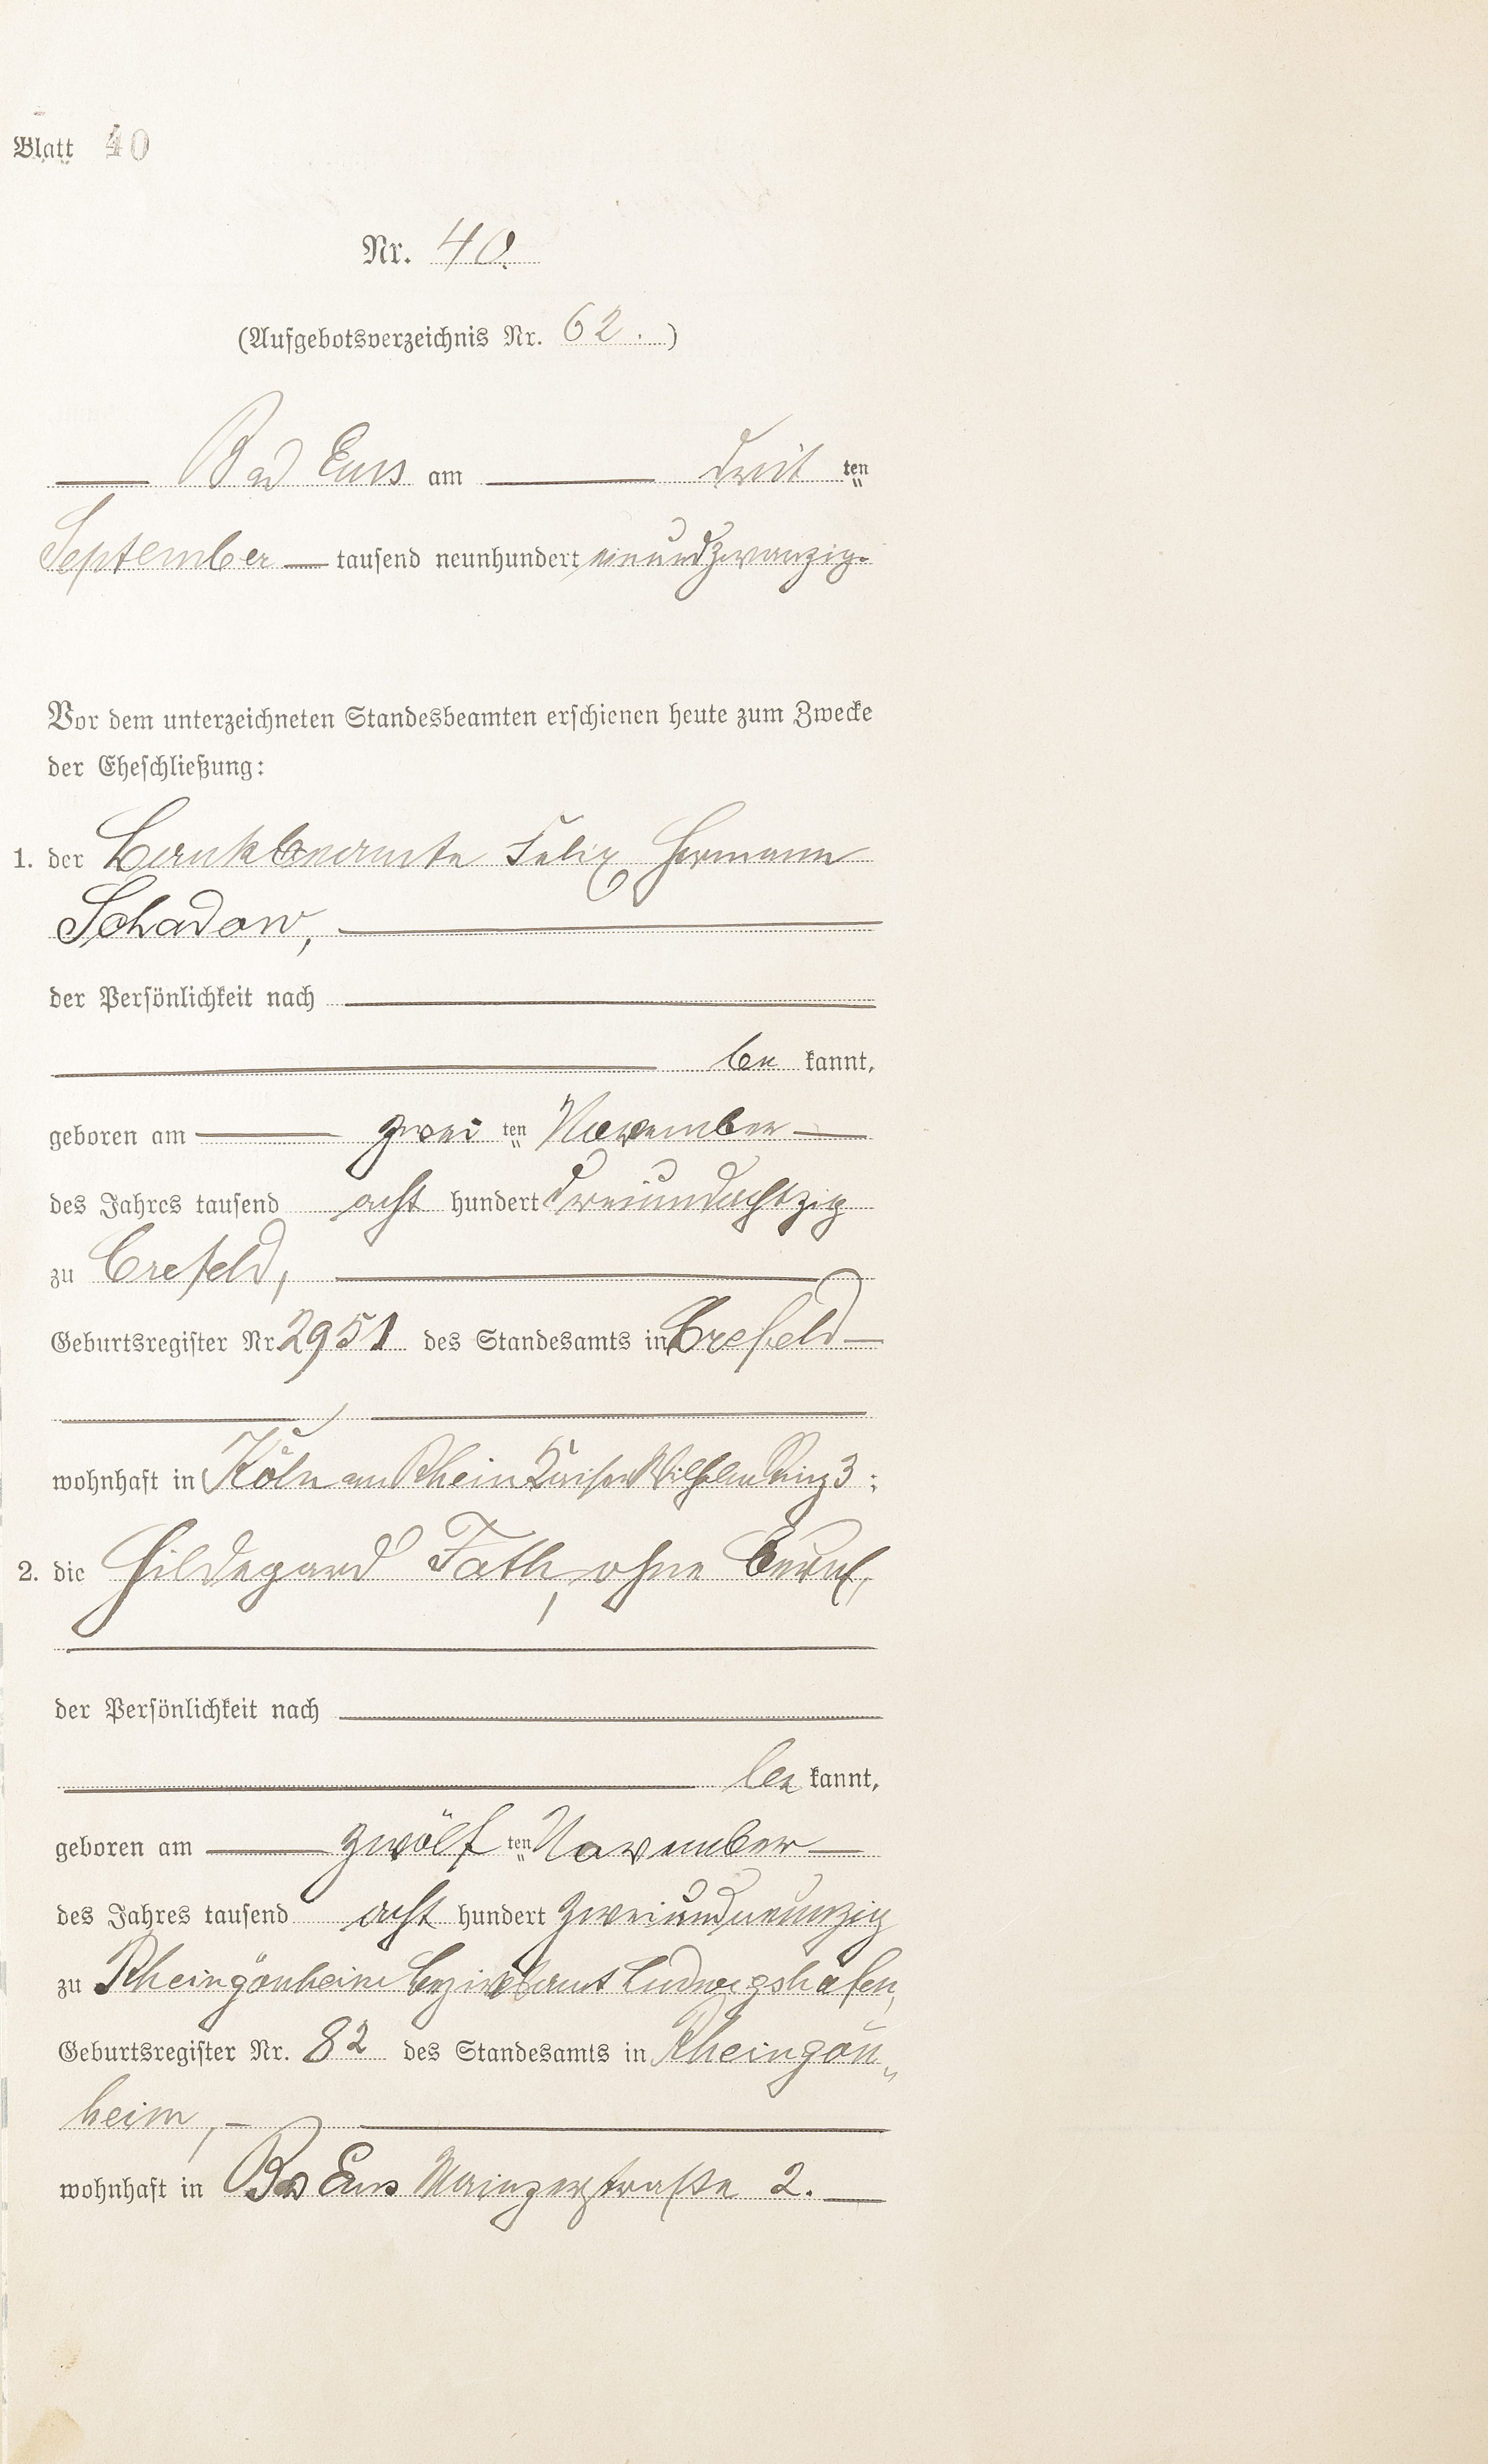 Blatt 40
Nr. 40.
(Aufgebotsverzeichnis Nr. 62.)
Bad Ems am drit ten
September tausend neunhundert einundzwanzig.
Vor dem unterzeichneten Standesbeamten erschienen heute zum Zwecke
der Eheschließung:
1. der Bankbeamte Felix Hermann
Schadow,
der Persönlichkeit nach
be kannt,
geboren am zwei ten November
des Jahres tausend acht hundert dreiundachtzig
zu Crefeld,
Geburtsregister Nr. 2951 des Standesamts in Crefeld
wohnhaft in Köln am Rhein Kaiser Wilhelm Ring 3;
2. die Hildegard Fath, ohne Beruf,
der Persönlichkeit nach
be kannt,
geboren am zwölf ten November
des Jahres tausend acht hundert zweiundneunzig
zu Rheingönheim Bezirksamt Ludwigshafen,
Geburtsregister Nr. 82 des Standesamts in Rheingön„
heim,
wohnhaft in Bad Ems Mainzerstraße 2.